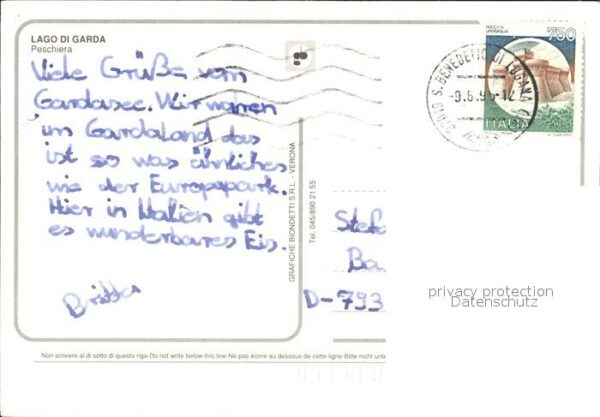 LAGO DI GARDA
Peschiera
Viele Grüße vom
Gardasee. Wir warren
im Gardaland das
ist so was ähnliches
wie der Europapark.
Hier in Italien gibt
es wunderbares Eis.
Britta
GRAFICHE BIONDETTI S.R.L. - VERONA
Tel. 045/890 21 55
ROCCA DI URBISAGLIA
750
ITALIA
S. BENEDETTO DI LUGANA
-9.6.95-12
Stefa
Ba
D-793
privacy protection
Datenschutz
Non scrivere al di sotto di questa riga-Do not write below this line-Ne pas écrire au dessous de cette ligne-Bitte nicht unte